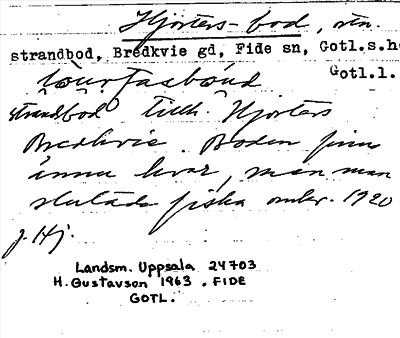 Hjorters-bod, stn.
strandbod, Bredkvie gd, Fide sn, Gotl.s.h
Gotl.l.
strandbod tillh. Hjorters
Bredkvie. Boden finns
ännu kvar, men man
slutade fiska omkr. 1920
J. Hj.
Landsm. Uppsala 24703
H. Gustavson 1963. FIDE
GOTL.